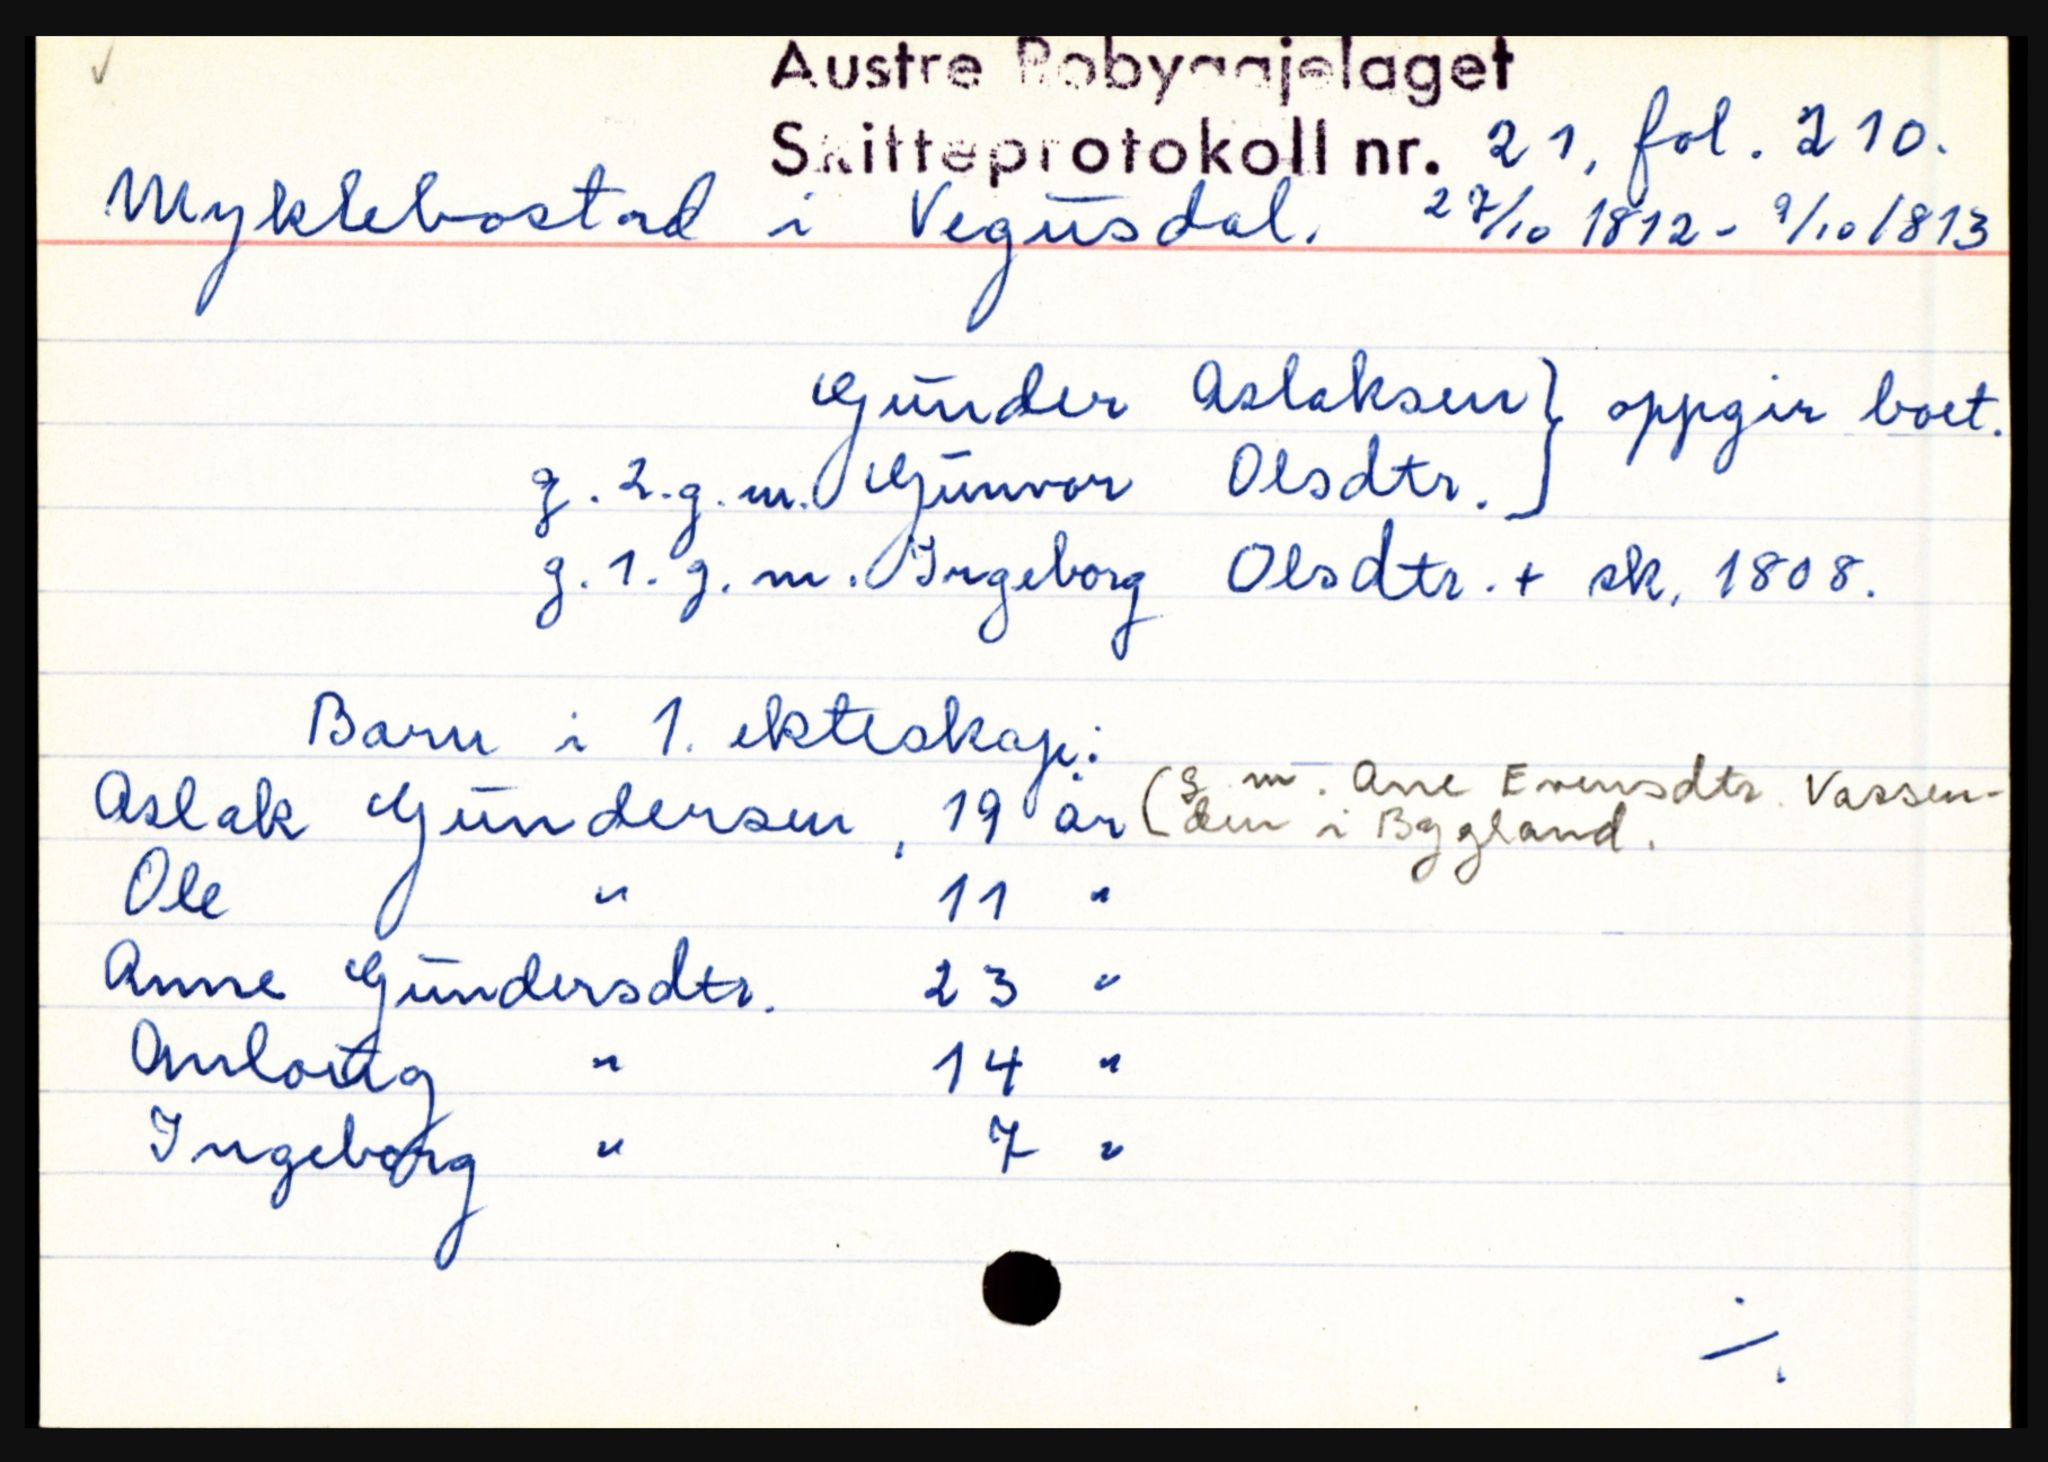 Austre Robyggjelaget
Skifteprotokoll nr. 21, fol. 210.
Myklebostad i Vegusdal. 27/10 1812 - 9/10 1813
Gunder Aslaksen } oppgir boet.
g. 2. g. m. Gunvor Olsdtr.
g. 1. g. m. Ingeborg Olsdtr. + sk, 1808.
Barn i 1. ekteskap:
Aslak Gundersen, 19 år (g. m. Ane Evensdtr. Vassen-
den i Byggland.
Ole " 11 "
Anne Gundersdtr. 23 "
Anlaug " 14 "
Ingeborg " 7 "
./.